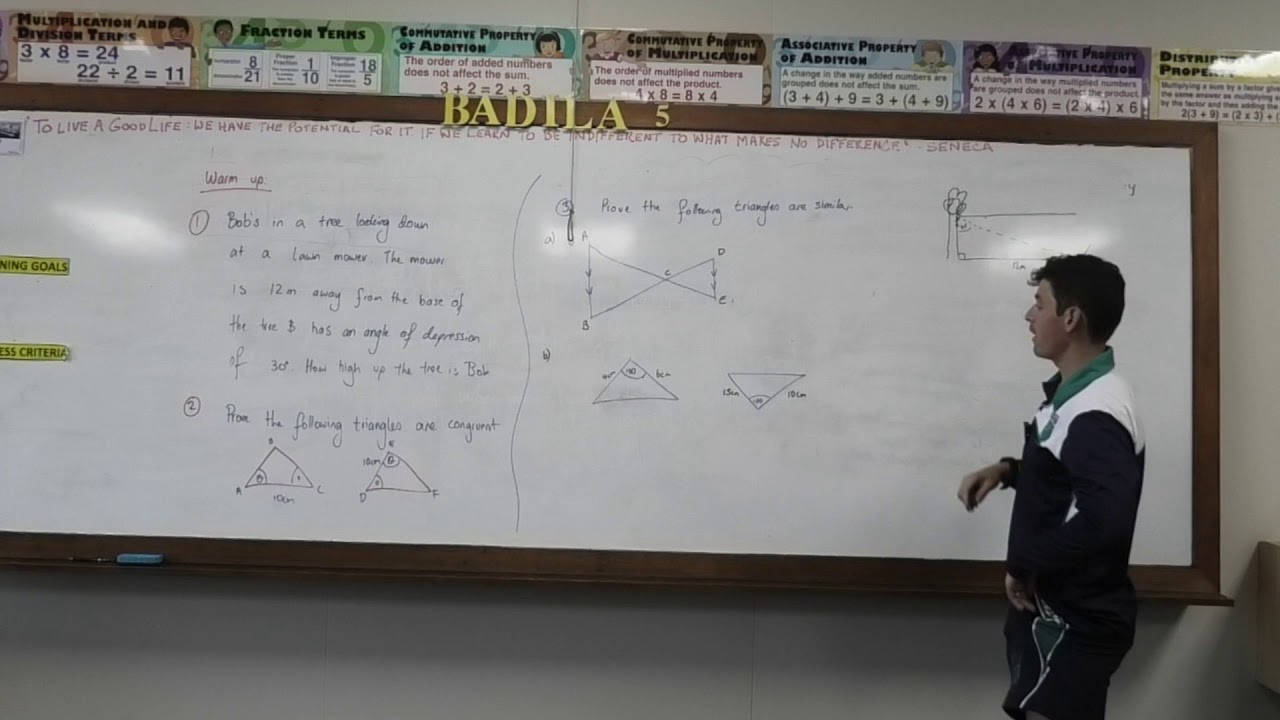 MULTIPLICATION AND
DIVISION TERMS
3 x 8 = 24
22 ÷ 2 = 11
FRACTION TERMS
8
21
Proper
Fraction
1
10
Improper
Fraction
18
5
COMMUTATIVE PROPERTY
OF ADDITION
The order of added numbers
does not affect the sum.
3 + 2 = 2 + 3
COMMUTATIVE PROPERTY
OF MULTIPLICATION
The order of multiplied numbers
does not affect the product.
4 x 8 = 8 x 4
ASSOCIATIVE PROPERTY
OF ADDITION
A change in the way added numbers are
grouped does not affect the sum.
(3 + 4) + 9 = 3 + (4 + 9)
ASSOCIATIVE PROPERTY
OF MULTIPLICATION
A change in the way multiplied numbers
are grouped does not affect the product.
2 x (4 x 6) = (2 x 4) x 6
DISTRIB
PROPERTY
Multiplying a sum by a factor
the same answer as multiplying
by the factor and then adding the
2(3 + 9) = (2 x 3) +
BADILA 5
"TO LIVE A GOOD LIFE: WE HAVE THE POTENTIAL FOR IT IF WE LEARN TO BE INDIFFERENT TO WHAT MAKES NO DIFFERENCE." - SENECA
NING GOALS
ESS CRITERIA
Warm up:
1 Bob's in a tree looking down
at a lawn mower. The mower
is 12m away from the base of
the tree & has an angle of depression
of 30°. How high up the tree is Bob
2 Prove the following triangles are congruent
B
A
C
10cm
E
10cm
D
F
3 Prove the following triangles are similar
a) A
D
C
B
E
b)
6cm
15cm
10cm
12m
y